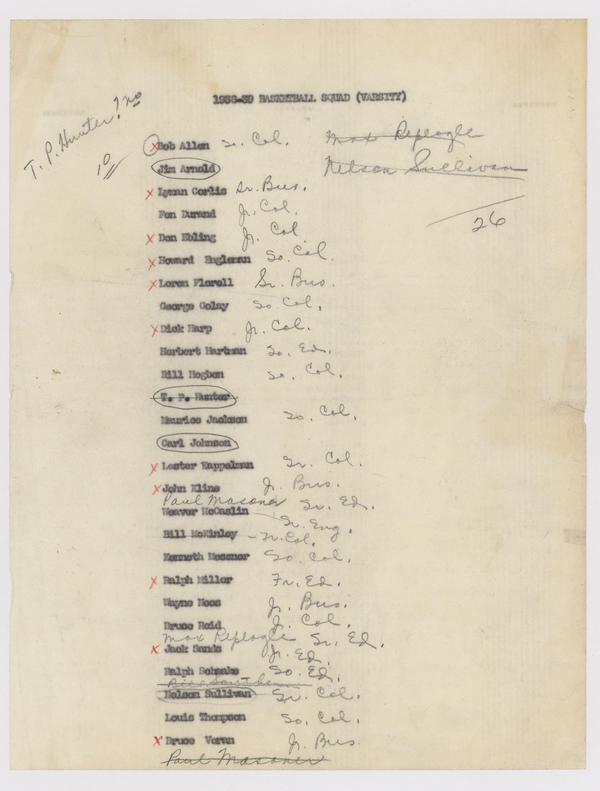 1938-39 BASKETBALL SQUAD (VARSITY)
T. P. Hunter? no
10
Max Replogle
Nelson Sullivan
26
x Bob Allen So. Col.
Jim Arnold
x Lyman Corlis Sr. Bus.
Fen Durand Jr. Col.
x Don Ebling Jr. Col
x Howard Engleman So. Col.
x Loren Florell Sr. Bus.
George Golay So. Col.
x Dick Harp Jr. Col.
Herbert Hartman So. Ed.
Bill Hogben So. Col.
T. P. Hunter
Maurice Jackson So. Col.
Carl Johnson
x Lester Kappelman Sr. Col.
x John Kline Jr. Bus.
Paul Masoner Sr. Ed.
Weaver McCaslin Sr. Eng.
Bill McKinley - Fr. Col.
Kenneth Messner So. Col.
x Ralph Miller Fr. Ed.
Wayne Nees Jr. Bus.
Bruce Reid Jr. Col.
Max Replogle Sr. Ed.
x Jack Sands Jr. Ed.
Ralph Schaake So. Ed.
Nelson Sullivan Sr. Col.
Louis Thompson So. Col.
x Bruce Voran Jr. Bus.
Paul Masoner